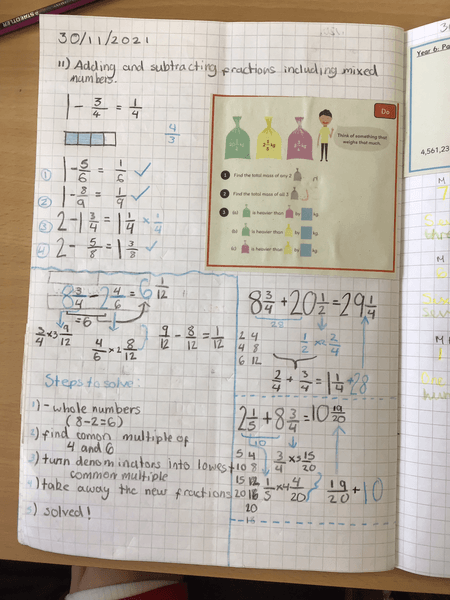 30/11/2021
11) Adding and subtracting fractions including mixed
numbers.
1 - 3/4 = 1/4
4/3
① 1 - 5/6 = 1/6 ✓
② 1 - 8/9 = 1/9 ✓
③ 2 - 1 3/4 = 1 1/4 × 1/4
④ 2 - 5/8 = 1 3/8 ✓
Do
Think of something that
weighs that much.
1 Find the total mass of any 2
2 Find the total mass of all 3
3 (a) is heavier than by kg.
(b) is heavier than by kg.
(c) is heavier than by kg.
8 3/4 - 2 4/6 = 6 1/12
= 6
3/4 ×3 9/12
4/6 ×2 8/12
9/12 - 8/12 = 1/12
Steps to solve:
1) - whole numbers
(8-2=6)
2) find comon multiple of
4 and 6
3) turn denominators into lowest
common multiple
4) take away the new fractions
5) solved!
8 3/4 + 20 1/2 = 29 1/4
28
2 4
4 8
6 12
1/2 ×2 2/4
2/4 + 3/4 = 1 1/4 + 28
2 1/5 + 8 3/4 = 10 19/20
10
5 4
10 8
15 12
20 16
20
3/4 ×5 15/20
1/5 ×4 4/20
19/20 + 10
Year 6: Pa
4,561,23
M
7
M
M
STAEDTLER